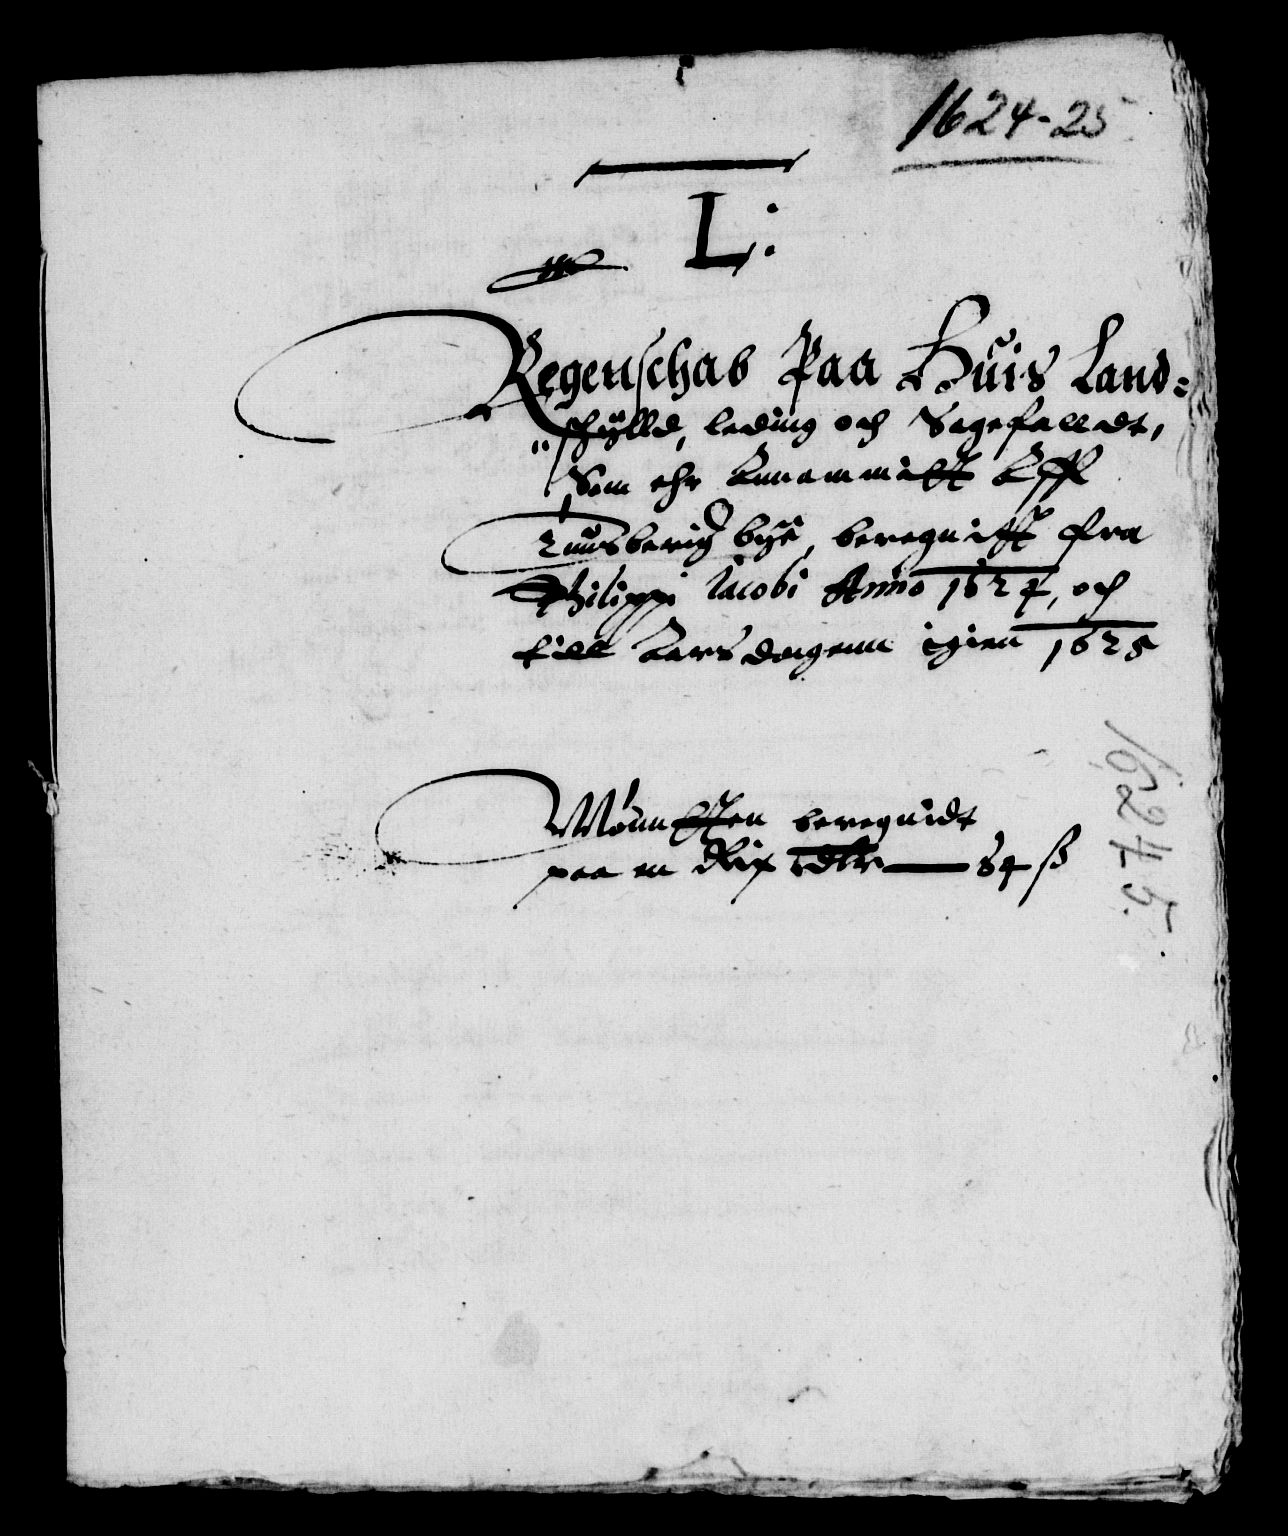 1624-25
L:
Regenschab Paa Huis Land=
schÿlld, leding och Sagefalldt,
Som ehr Annammitt Aff
Tunsberig bÿe, beregnitt fra
Philippi Jacobi Anno 1624, och
till Aars dagenn igien 1625
Mÿnntten beregnidt
paa en Rix dlr 84 ß
1624 5